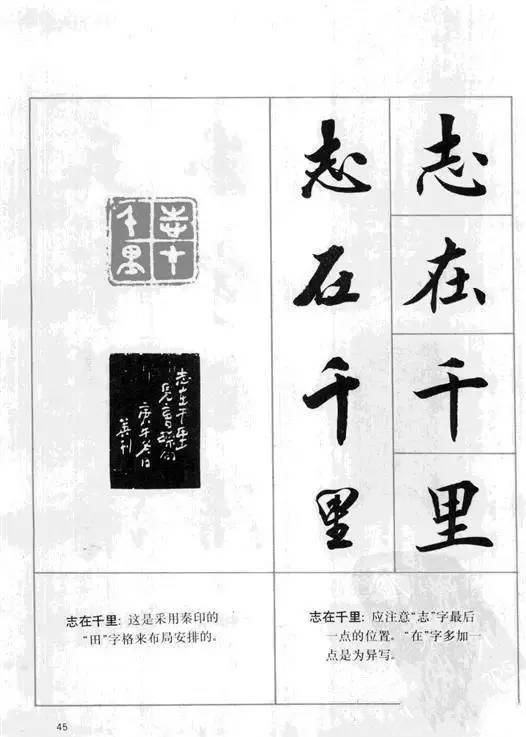 志在千里
志在千里
志在千里
志在千里
庚午
志在千里：应注意“志”字最后
一点的位置。“在”字多加一
点是为异写。
志在千里：这是采用秦印的
“田”字格来布局安排的。
45